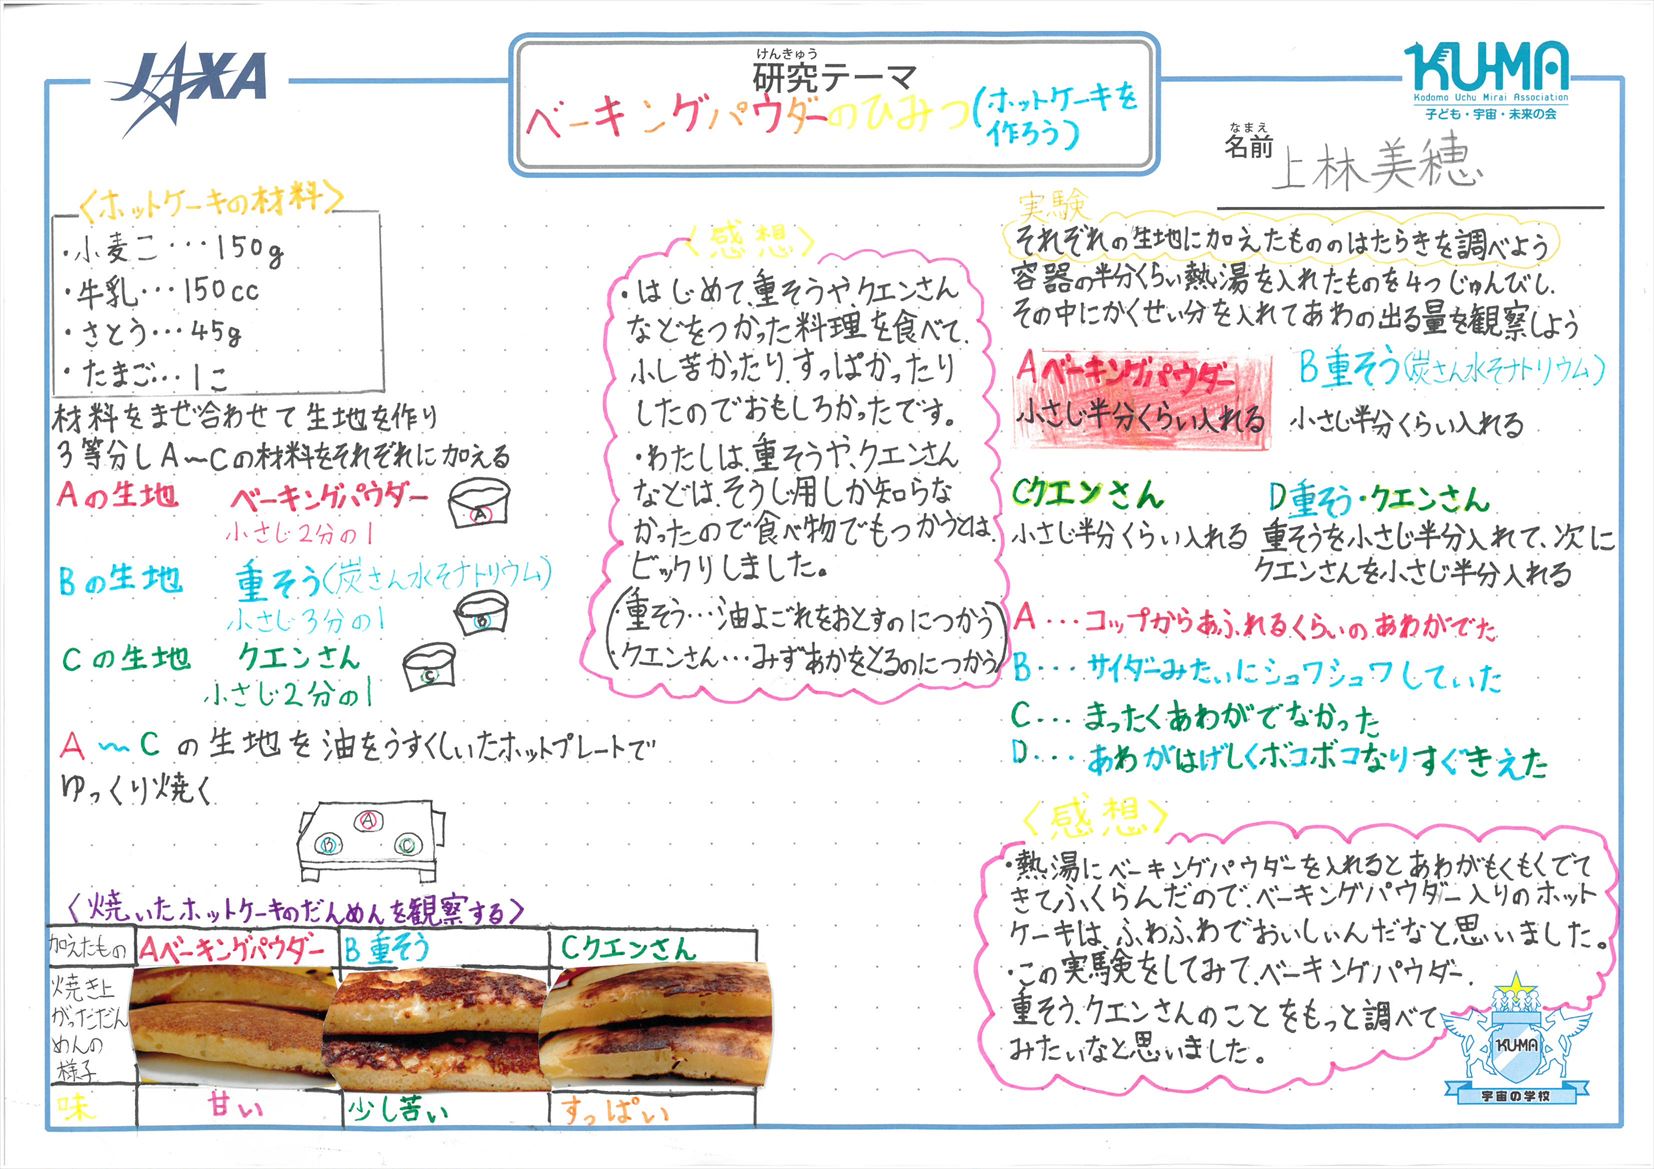 JAXA
けんきゅう
研究テーマ
ベーキングパウダーのひみつ(ホットケーキを
作ろう)
KU-MA
Kodomo Uchu Mirai Association
子ども・宇宙・未来の会
なまえ
名前
上林美穂
〈ホットケーキの材料〉
・小麦こ・・・150g
・牛乳・・・150cc
・さとう・・・45g
・たまご・・・1こ
材料をまぜ合わせて生地を作り
3等分しA～Cの材料をそれぞれに加える
Aの生地 ベーキングパウダー
小さじ2分の1
A
Bの生地 重そう(炭さん水そナトリウム)
小さじ3分の1
B
Cの生地 クエンさん
小さじ2分の1
C
A～Cの生地を油をうすくしいたホットプレートで
ゆっくり焼く
A
B C
〈焼いたホットケーキのだんめんを観察する〉
加えたもの Aベーキングパウダー B重そう Cクエンさん
焼き上
がっただん
めんの
様子
味 甘い 少し苦い すっぱい
〈感想〉
・はじめて、重そうや、クエンさん
などをつかった料理を食べて、
少し苦かったり、すっぱかったり
したのでおもしろかったです。
・わたしは、重そうや、クエンさん
などは、そうじ用しか知らな
かったので食べ物でもつかうとは、
ビックリしました。
(・重そう・・・油よごれをおとすのにつかう
・クエンさん・・・みずあかをとるのにつかう)
実験
それぞれの生地に加えたもののはたらきを調べよう
容器の半分くらい熱湯を入れたものを4つじゅんびし、
その中にかくせい分を入れてあわの出る量を観察しよう
Aベーキングパウダー
小さじ半分くらい入れる
B重そう(炭さん水そナトリウム)
小さじ半分くらい入れる
Cクエンさん
小さじ半分くらい入れる
D重そう・クエンさん
重そうを小さじ半分入れて、次に
クエンさんを小さじ半分入れる
A・・・コップからあふれるくらいのあわがでた
B・・・サイダーみたいにシュワシュワしていた
C・・・まったくあわがでなかった
D・・・あわがはげしくボコボコなりすぐきえた
〈感想〉
・熱湯にベーキングパウダーを入れるとあわがもくもくでて
きてふくらんだので、ベーキングパウダー入りのホット
ケーキは、ふわふわでおいしいんだなと思いました。
・この実験をしてみて、ベーキングパウダー、
重そう、クエンさんのことをもっと調べて
みたいなと思いました。
KUMA
宇宙の学校